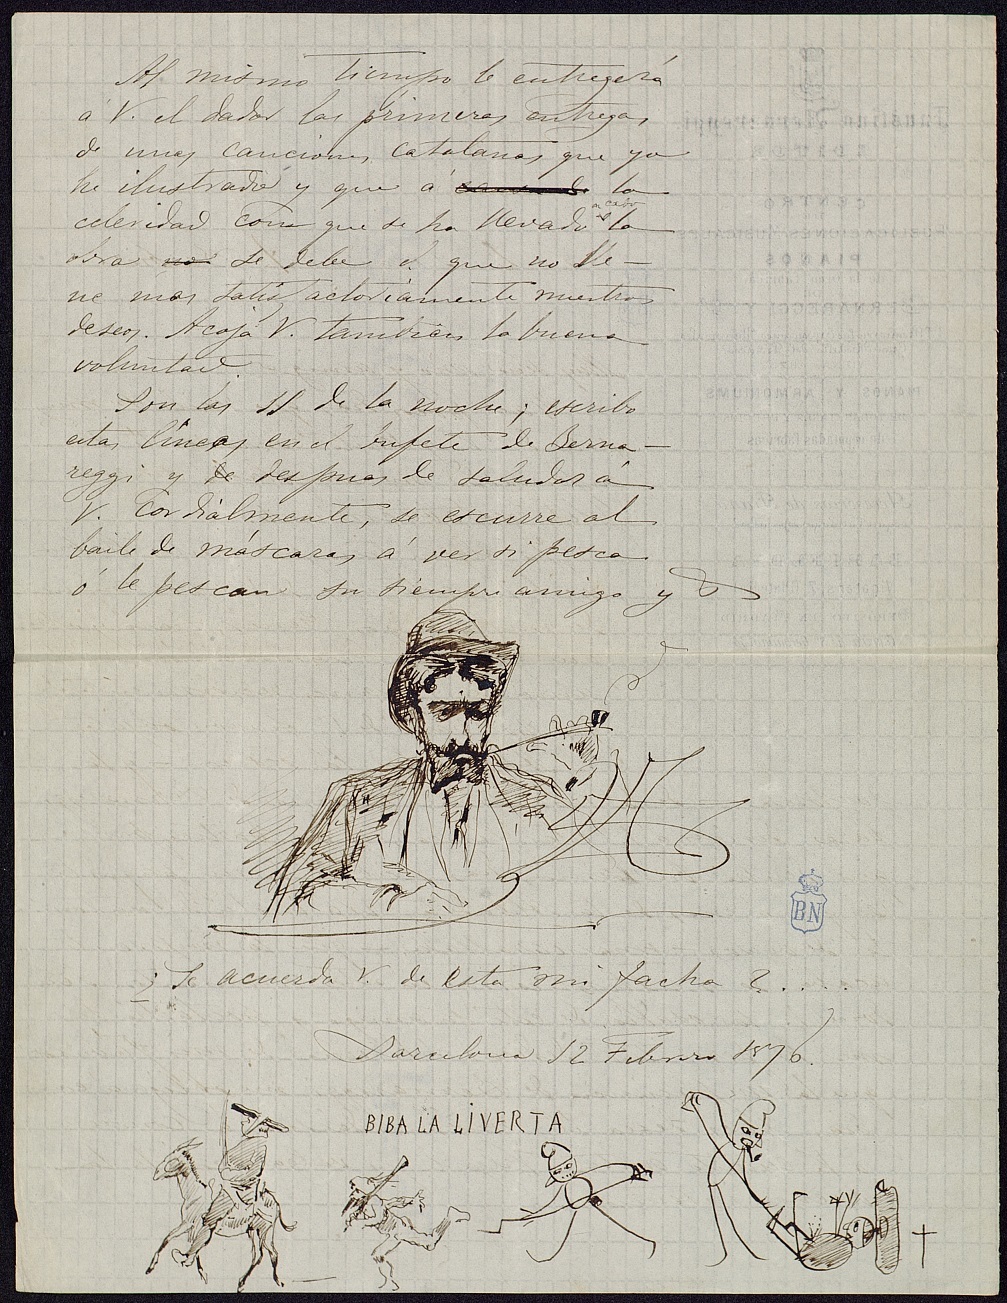 Al mismo tiempo le entregerá
á V. el dador las primeras entregas
de unas canciones catalanas que yo
he ilustrado y que á causa de la
celeridad con que se ha llevado á cabo la
obra no se debe el que no lle-
ne mas satisfactoriamente nuestros
deseos. Acoja V. tambien la buena
voluntad.
Son las 11 de la noche; escribo
estas lineas en el bufete de Berna-
reggi y de despues de saludar á
V. cordialmente, se escurre al
baile de máscaras á ver si pesca
ó le pescan su siempre amigo y
¿Se acuerda V. de esta mi facha?....
Barcelona 12 Febrero 1876.
BIBA LA LIVERTA
BN